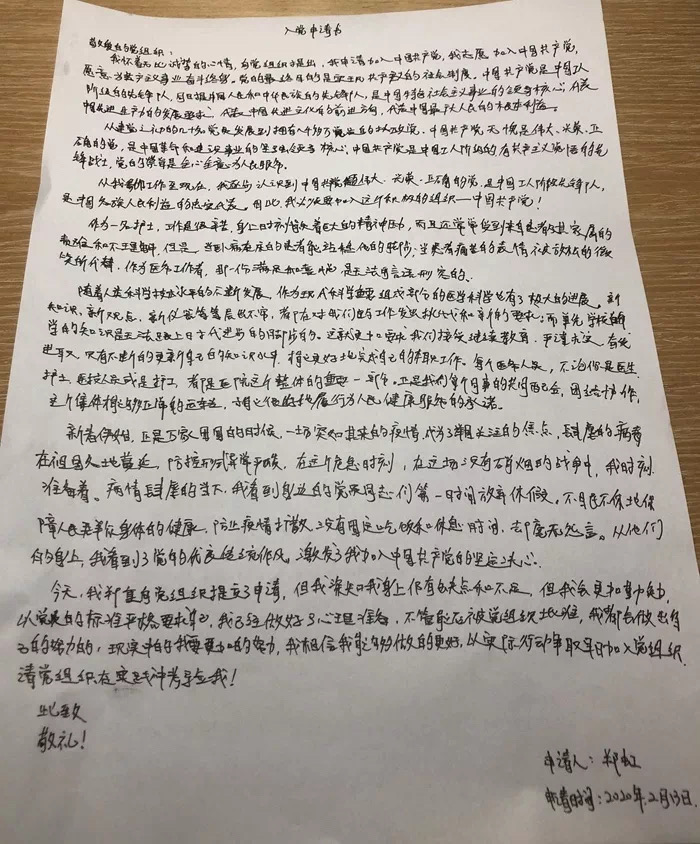 入党申请书
敬爱的党组织：
我怀着无比诚挚的心情，向党组织提出，我申请加入中国共产党，我志愿加入中国共产党，
愿意为共产主义事业奋斗终身。党的最终目的是实现共产主义的社会制度。中国共产党是中国工人
阶级的先锋队，同时是中国人民和中华民族的先锋队，是中国特色社会主义事业的领导核心，代表
中国先进生产力的发展要求，代表中国先进文化的前进方向，代表中国最广大人民的根本利益。
从建党之初的几十名党员发展到拥有的执政党，中国共产党无愧是伟大、光荣、正
确的党，是中国革命和建设事业的坚强领导核心。中国共产党是中国工人阶级的有共产主义觉悟的先
锋战士，党的宗旨是全心全意为人民服务。
从我参加工作至现在，我逐步认识到中国共产党伟大、光荣、正确的党，是中国工人阶级先锋队，
是中国各族人民利益的忠实代表。因此，我加入这个组织——中国共产党！
作为一名护士，工作是很辛苦，身上时刻背负着巨大的精神压力，而且还常常受到来自患者及其家属的
和不理解，但是，当卧病在床的患者能当患者痛苦的表情不被放松的微
笑所代替，作为医务工作者，那一份满足和是无法用言语形容的。
随着人类科学技术水平的不断发展，作为现代科学重要组成部分的医学科学也有了极大的进展，新
知识，新观点，新仪器等层出不穷，都在对我们的工作发出挑战和新的要求；而单凭学校
学的知识是无法跟上日子代进步的脚步的。这就更加要求我们接受继续教育。
只有不断的更新自己的知识水平，才能更好地完成自己的本职工作。每个医务人员，不论你是医生、
护士、医技人员或是护工，都是医院这个整体的重要一部分。正是我们每个同事的共同配合，团结协作，
这个集体才能够正常的运转，才能为人民健康服务的承诺。
新春伊始，正是万家团圆的时候，一场突如其来的疫情，成为了举国关注的焦点，肆虐的病毒
在祖国各地蔓延，防控形势异常严峻，在这个危急时刻，在这场没有硝烟的战争中，我时刻
准备着。病情肆虐的当下，我看到身边的党员同志们第一时间放弃休假。不眠不休地保
障人民群众身体的健康，防止疫情扩散，没有固定吃饭和休息时间，却毫无怨言。从他们
的身上，我看到了党的优良传统作风，激发了我加入中国共产党的坚定决心。
今天，我郑重向党组织提交了申请，但我深知我身上仍有缺点和不足，但我会更加努力，
以党员的标准严格要求自己，我已经做好了心理准备，不管能否被党组织批准，我都会做出自
己的努力的，现实中的我要更加的努力，我相信我能够做的更好，以实际行动争取早日加入党组织
请党组织在实践中考验我！
此致
敬礼！
申请人：郑虹
申请时间：2020年2月13日.